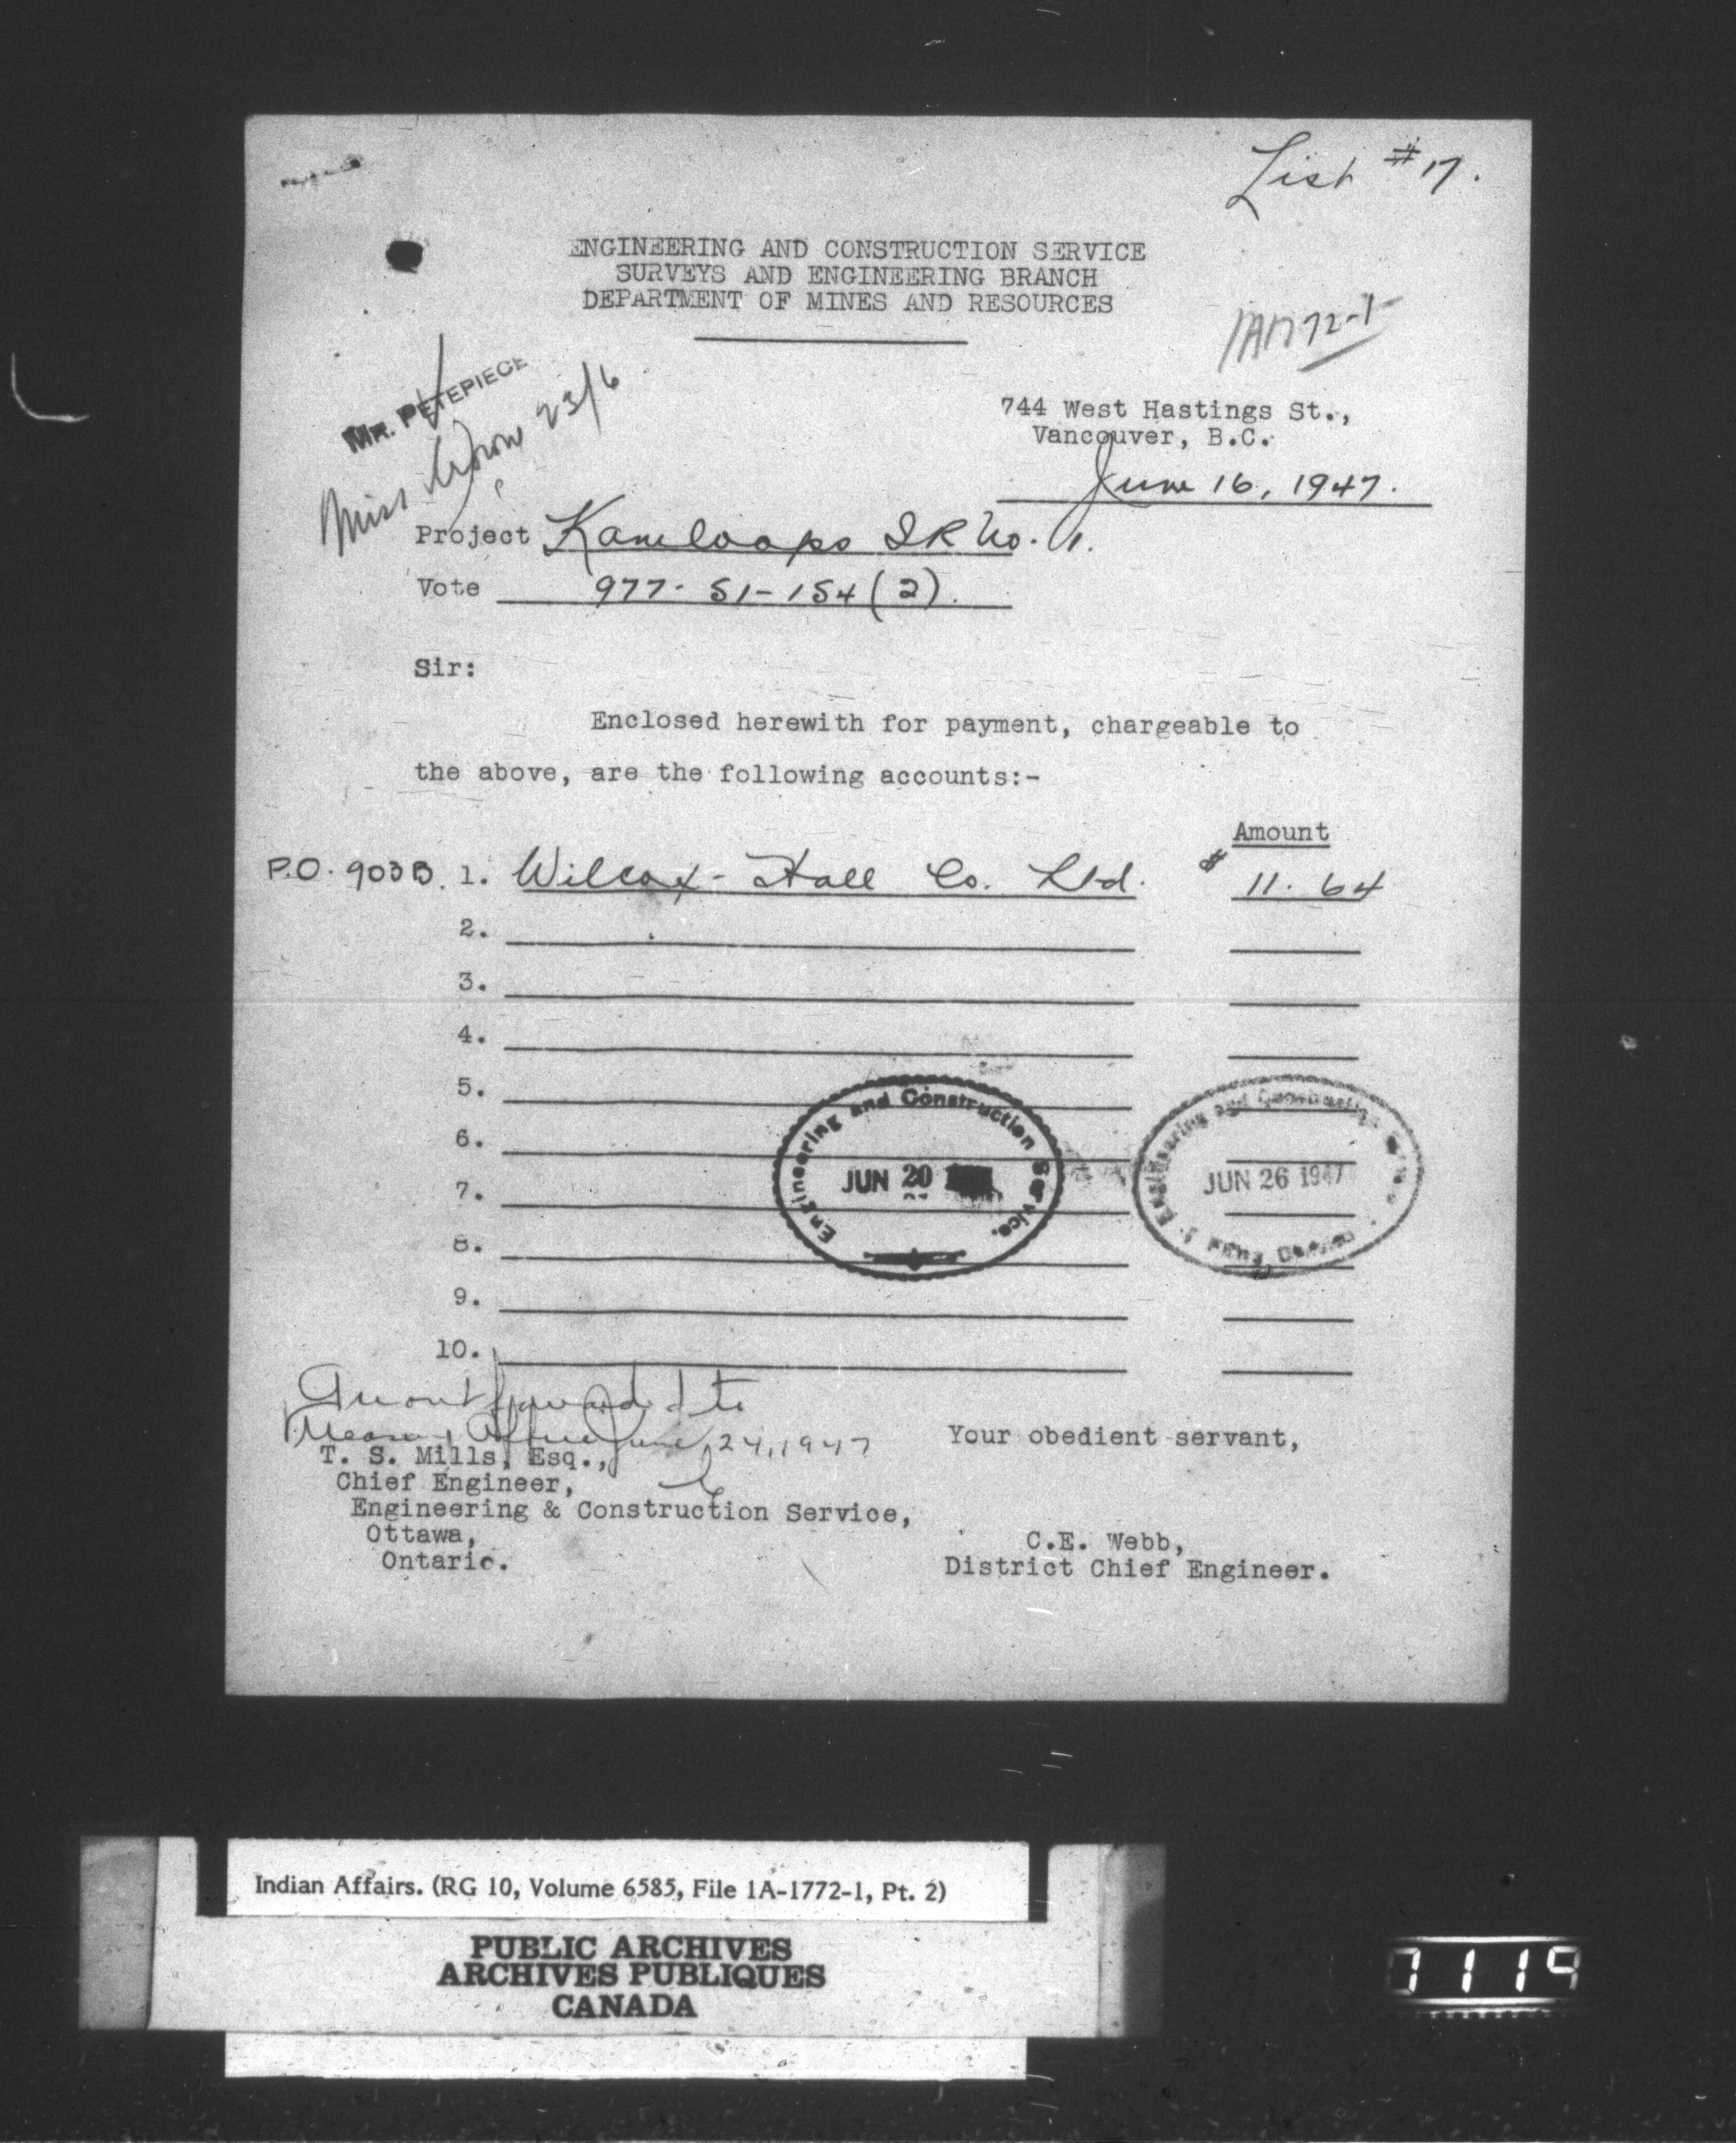 List #17.
ENGINEERING AND CONSTRUCTION SERVICE
SURVEYS AND ENGINEERING BRANCH
DEPARTMENT OF MINES AND RESOURCES
1A1772-1
MR. PETEPIECE
Miss 23/6
744 West Hastings St.,
Vancouver, B.C.
June 16, 1947.
Project Kamloops IR No. 1.
Vote 977-51-154(2).
Sir:
Enclosed herewith for payment, chargeable to
the above, are the following accounts:-
Amount
P.O. 903B. 1. Wilcox-Hall Co. Ltd. $ 11.64
2.
3.
4.
5.
6.
7.
8.
9.
10.
Engineering and Construction Service.
JUN 20
Engineering and Construction
JUN 26 1947
forwarded to
Treasury Office June 24, 1947
T. S. Mills, Esq.,
Chief Engineer,
Engineering & Construction Service,
Ottawa,
Ontario.
Your obedient servant,
C.E. Webb,
District Chief Engineer.
Indian Affairs. (RG 10, Volume 6585, File 1A-1772-1, Pt. 2)
PUBLIC ARCHIVES
ARCHIVES PUBLIQUES
CANADA
1119